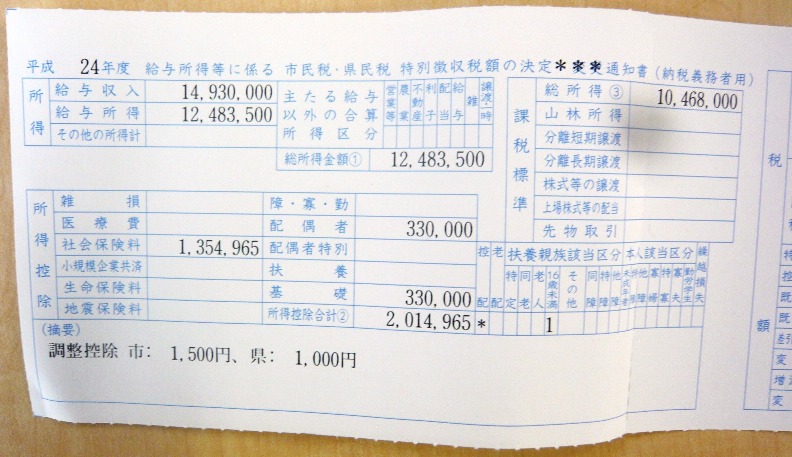 平成 24年度 給与所得等に係る 市民税・県民税 特別徴収税額の決定***通知書(納税義務者用)
所得
給与収入 14,930,000
給与所得 12,483,500
その他の所得計
主たる給与以外の合算所得区分
営業等 農業 不動産 利子 配当 給与 雑 譲渡・一時
総所得金額① 12,483,500
課税標準
総所得③ 10,468,000
山林所得
分離短期譲渡
分離長期譲渡
株式等の譲渡
上場株式等の配当
先物取引
所得控除
雑損
医療費
社会保険料 1,354,965
小規模企業共済
生命保険料
地震保険料
障・寡・勤
配偶者 330,000
配偶者特別
扶養
基礎 330,000
所得控除合計② 2,014,965
扶養親族該当区分 本人該当区分 繰越損失
控配 老配 特定 同老 老人 16歳未満 その他 同障 特障 他障 未成年者 特障 他障 寡婦 特寡 寡夫 勤労学生
* 1
(摘要)
調整控除 市: 1,500円、県: 1,000円
税
額
特
控
既
既
差引
変
増
変